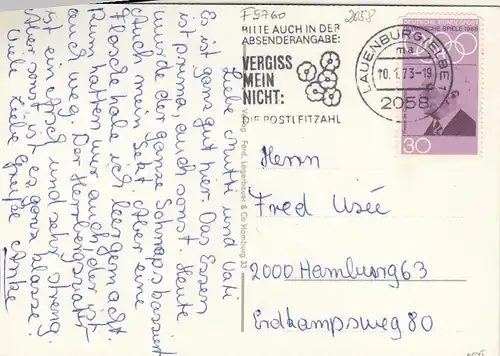 F 5760
2058
BITTE AUCH IN DER
ABSENDERANGABE:
VERGISS
MEIN
NICHT:
DIE POSTLEITZAHL
LAUENBURG (ELBE) 1
ma
10.1.73-19
2058
DEUTSCHE BUNDESPOST
OLYMPISCHE SPIELE 1968
30
Liebe Mutti und Vati
Es ist ganz gut hier. Das Essen
ist prima, auch sonst. Heute
wurde der ganze Schnaps kassiert
Auch mein Sekt. Aber eine
Flasche habe ich leergemacht.
Rum hatten wir auch, der ist
auch weg. Der Herbergsvater
ist ein Arsch und sehr streng.
Aber sonst ist es ganz klasse.
Viele liebe Grüße Anke
Verlag Ferd. Lagerbauer & Co Hamburg 33
Herrn
Fred Usée
2000 Hamburg 63
Erdkampsweg 80